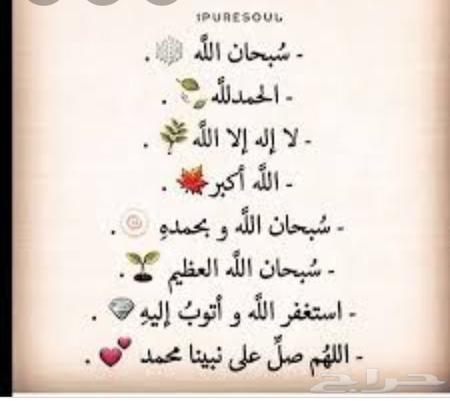 1PURESOUL
- سُبحان اللَّه 🕸 .
- الحمدللَّه 🍃 .
- لا إله إلا اللَّه 🌿 .
- اللَّه أكبر 🍁 .
- سُبحان اللَّه و بحمدهِ 🍥 .
- سُبحان اللَّه العظيم 🌱 .
- استغفر اللَّه و أتوبُ إليهِ 💎 .
- اللهُم صلِّ على نبينا محمد 💕 .
حراج